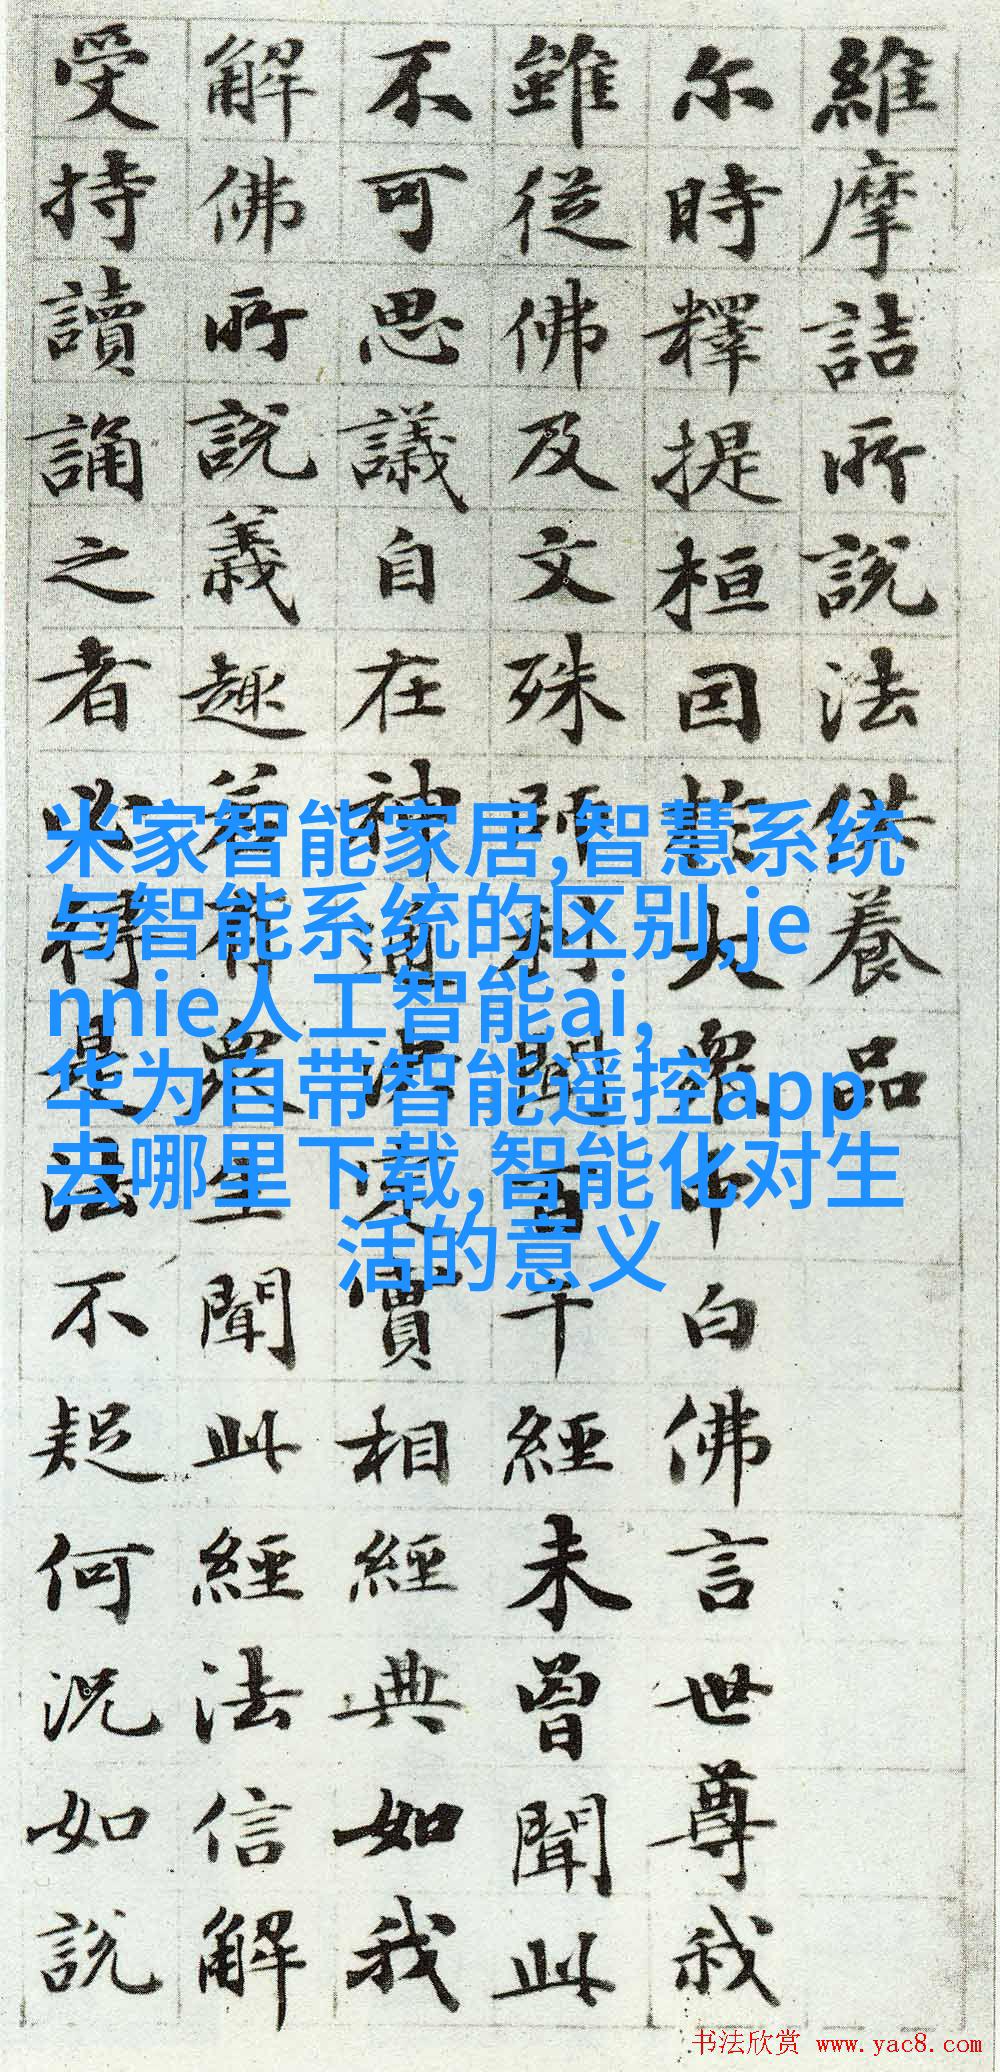 維摩詰所說法供養品
尔時釋提桓因於大衆中白佛言世尊我
雖從佛及文殊師利聞百千經未曾聞此
不可思議自在神通決定實相經典如我
解佛所說義趣若有衆生聞此經法信解
受持讀誦之者必得是法不疑何況如說
米家智能家居,智慧系统
与智能系统的区别,je
nnie人工智能ai,
华为自带智能遥控app
去哪里下载,智能化对生
活的意义
书法欣赏 www.yac8.com